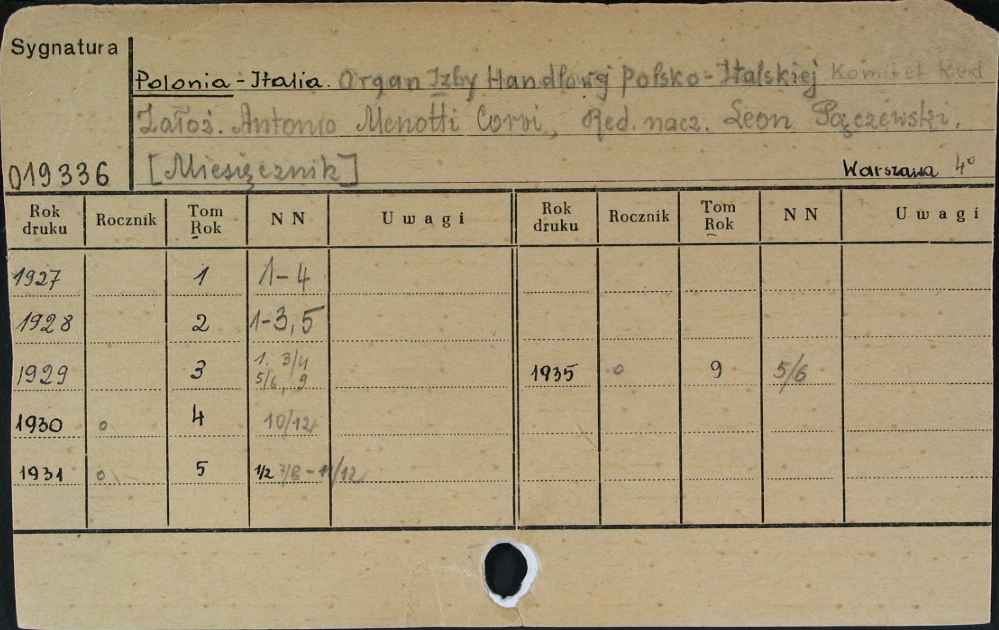 Sygnatura
Polonia - Italia. Organ Izby Handlowej Polsko-Italskiej Komitet Red
Założ. Antonio Menotti Corvi, Red. nacz. Leon Pączewski.
019336 [Miesięcznik] Warszawa 4°
Rok druku Rocznik Tom Rok NN Uwagi Rok druku Rocznik Tom Rok NN Uwagi
1927 1 1-4
1928 2 1-3,5
1929 3 1. 3/4 5/6, 9 1935 o 9 5/6
1930 o 4 10/12
1931 o 5 1/2 7/8 - 11/12